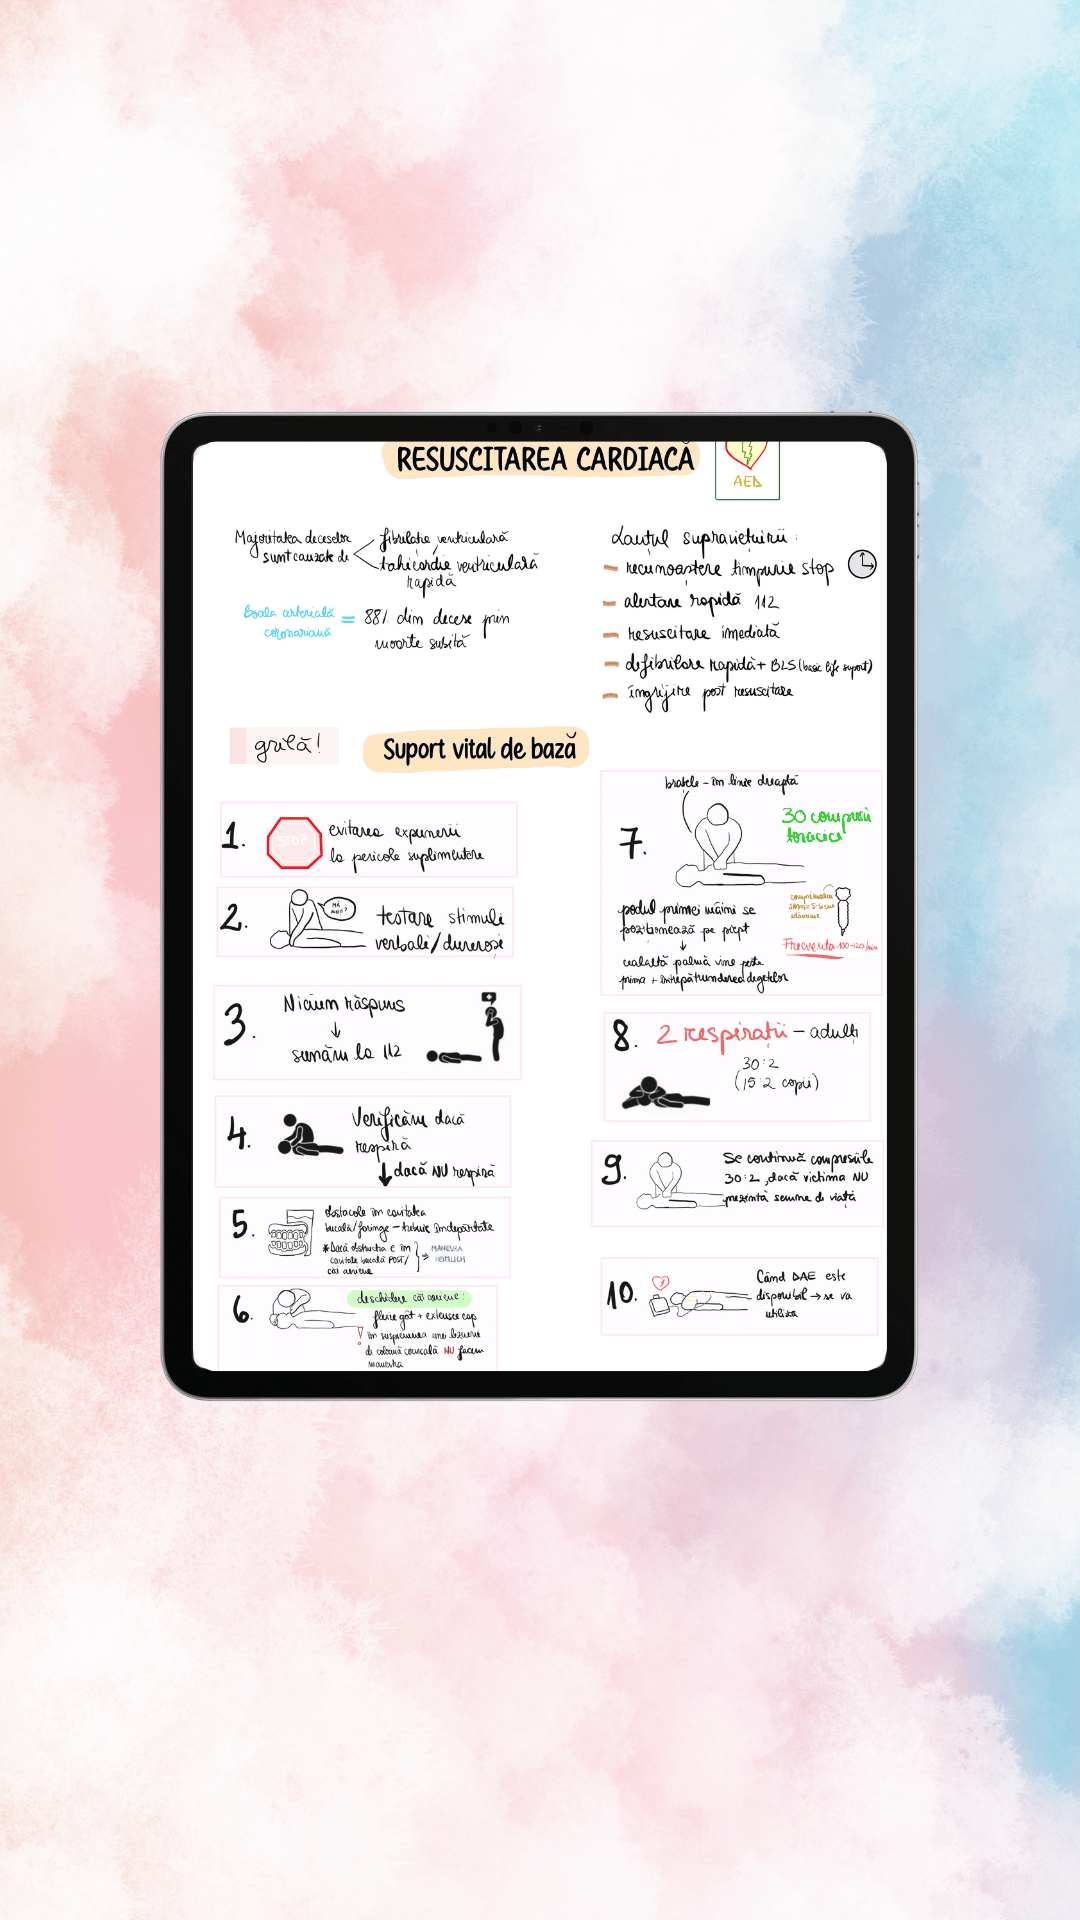 RESUSCITAREA CARDIACĂ
AED
Majoritatea deceselor
sunt cauzate de
fibrilație ventriculară
tahicardie ventriculară
rapidă
Boala arterială
coronariană
= 88% din decese prin
moarte subită
Lanțul supraviețuirii:
- recunoaștere timpurie stop
- alertare rapidă 112
- resuscitare imediată
- defibrilare rapidă + BLS (basic life suport)
- îngrijire post resuscitare
grilă!
Suport vital de bază
1.
STOP
evitarea expunerii
la pericole suplimentare
2.
testare stimuli
verbali/dureroși
3.
Niciun răspuns
↓
sunăm la 112
4.
Verificăm dacă
respiră
↓ dacă NU respiră
5.
obstacole în cavitatea
bucală/faringe - trebuie îndepărtate
*Dacă obstrucția e în
cavitate bucală POST/
căi aeriene
⇒ MANEVRA
HEIMLICH
6.
deschidere căi aeriene:
flexie gât + extensie cap
! în suspiciunea unei leziuni
de coloană cervicală NU facem
manevra
7.
brațele - în linie dreaptă
30 compresii
toracice
podul primei mâini se
poziționează pe piept
↓
cealaltă palmă vine peste
prima + întrepătrunderea degetelor
5-6 cm
Frecvența 100-120/min
8.
2 respirații - adulți
30:2
(15:2 copii)
9.
Se continuă compresiile
30:2, dacă victima NU
prezintă semne de viață
10.
Când DAE este
disponibil → se va
utiliza